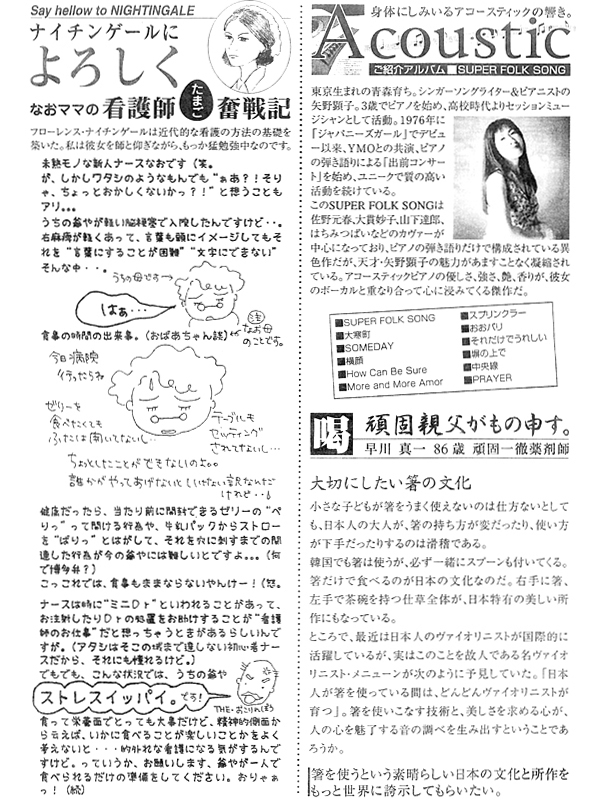 Say hello to NIGHTINGALE
ナイチンゲールに
よろしく
なおママの 看護師 たまご 奮戦記
フローレンス・ナイチンゲールは近代的な看護の方法の基礎を
築いた。私は彼女を師と仰ぎながら、もっか猛勉強中なのです。
未熟モノな新人ナースなおです（笑。
が、しかしワタシのようなもんでも“ぁあ？！そり
ゃ、ちょっとおかしくないかっ？！”と思うことも
アリ。。。
うちの爺やが軽い脳梗塞で入院したんですけど・・。
右麻痺が軽くあって、言葉も頭にイメージしてもそ
れを“言葉にすることが困難”“文字にできない”
そんな中・・。
うちの母です→
はぁ…
注 なお母
のことです。
食事の時間の出来事。（おばあちゃん談）
今日病院
行ったらね
ゼリーを
食べたくても
ふたは開いてないし…
テーブルも
セッティング
されてないし…
ちょっとしたことができないのよ。。
誰かがやってあげないといけない訳なんだ
けれど…。
健康だったら、当たり前に開封できるゼリーの“ぺ
りっ”って開ける行為や、牛乳パックからストロー
を“ぱりっ”とはがして、それを穴に刺すまでの関
連した行為が今の爺やには難しいとですよ。。。（何
で博多弁？）
こっこれでは、食事もままならないやんけー！（怒。
ナースは時に“ミニDr”といわれることがあって、
お注射したりDrの処置をお助けすることが“看護
師のお仕事”だと想っちゃうときがあるらしいんで
すが。（アタシはそこの域まで達しない初心者ナー
スだから、それにも憧れるけど。）
でもでも、こんな状況では、うちの爺や
ストレスイッパイ。です！
THE・おこりんぼう
食って栄養面でとっても大事だけど、精神的側面か
ら云えば、いかに食べることが楽しいことかをよく
考えないと・・・的外れな看護になる気がするんで
すけど。っていうか、お願いします、爺やが一人で
食べられるだけの準備をしてください。おりゃぁ
っ！（続）
身体にしみいるアコースティックの響き。
Acoustic
ご紹介アルバム ■ SUPER FOLK SONG
東京生まれの青森育ち。シンガーソングライター＆ピアニストの
矢野顕子。3歳でピアノを始め、高校時代よりセッションミュー
ジシャンとして活動。1976年に
『ジャパニーズガール』でデビュ
ー以来、YMOとの共演、ピアノ
の弾き語りによる「出前コンサー
ト」を始め、ユニークで質の高い
活動を続けている。
このSUPER FOLK SONGは
佐野元春、大貫妙子、山下達郎、
はちみつぱいなどのカヴァーが
中心になっており、ピアノの弾き語りだけで構成されている異
色作だが、天才・矢野顕子の魅力があますことなく凝縮され
ている。アコースティックピアノの優しさ、強さ、艶、香りが、彼女
のボーカルと重なり合って心に浸みてくる傑作だ。
■SUPER FOLK SONG
■大寒町
■SOMEDAY
■横顔
■How Can Be Sure
■More and More Amor
■スプリンクラー
■おおパリ
■それだけでうれしい
■塀の上で
■中央線
■PRAYER
喝 頑固親父がもの申す。
早川 真一 86歳 頑固一徹薬剤師
大切にしたい箸の文化
小さな子どもが箸をうまく使えないのは仕方ないとして
も、日本人の大人が、箸の持ち方が変だったり、使い方
が下手だったりするのは滑稽である。
韓国でも箸は使うが、必ず一緒にスプーンも付いてくる。
箸だけで食べるのが日本の文化なのだ。右手に箸、
左手で茶碗を持つ仕草全体が、日本特有の美しい所
作にもなっている。
ところで、最近は日本人のヴァイオリニストが国際的に
活躍しているが、実はこのことを故人である名ヴァイオ
リニスト・メニューンが次のように予見していた。「日本
人が箸を使っている間は、どんどんヴァイオリニストが
育つ」。箸を使いこなす技術と、美しさを求める心が、
人の心を魅了する音の調べを生み出すということであ
ろうか。
箸を使うという素晴らしい日本の文化と所作を
もっと世界に誇示してもらいたい。